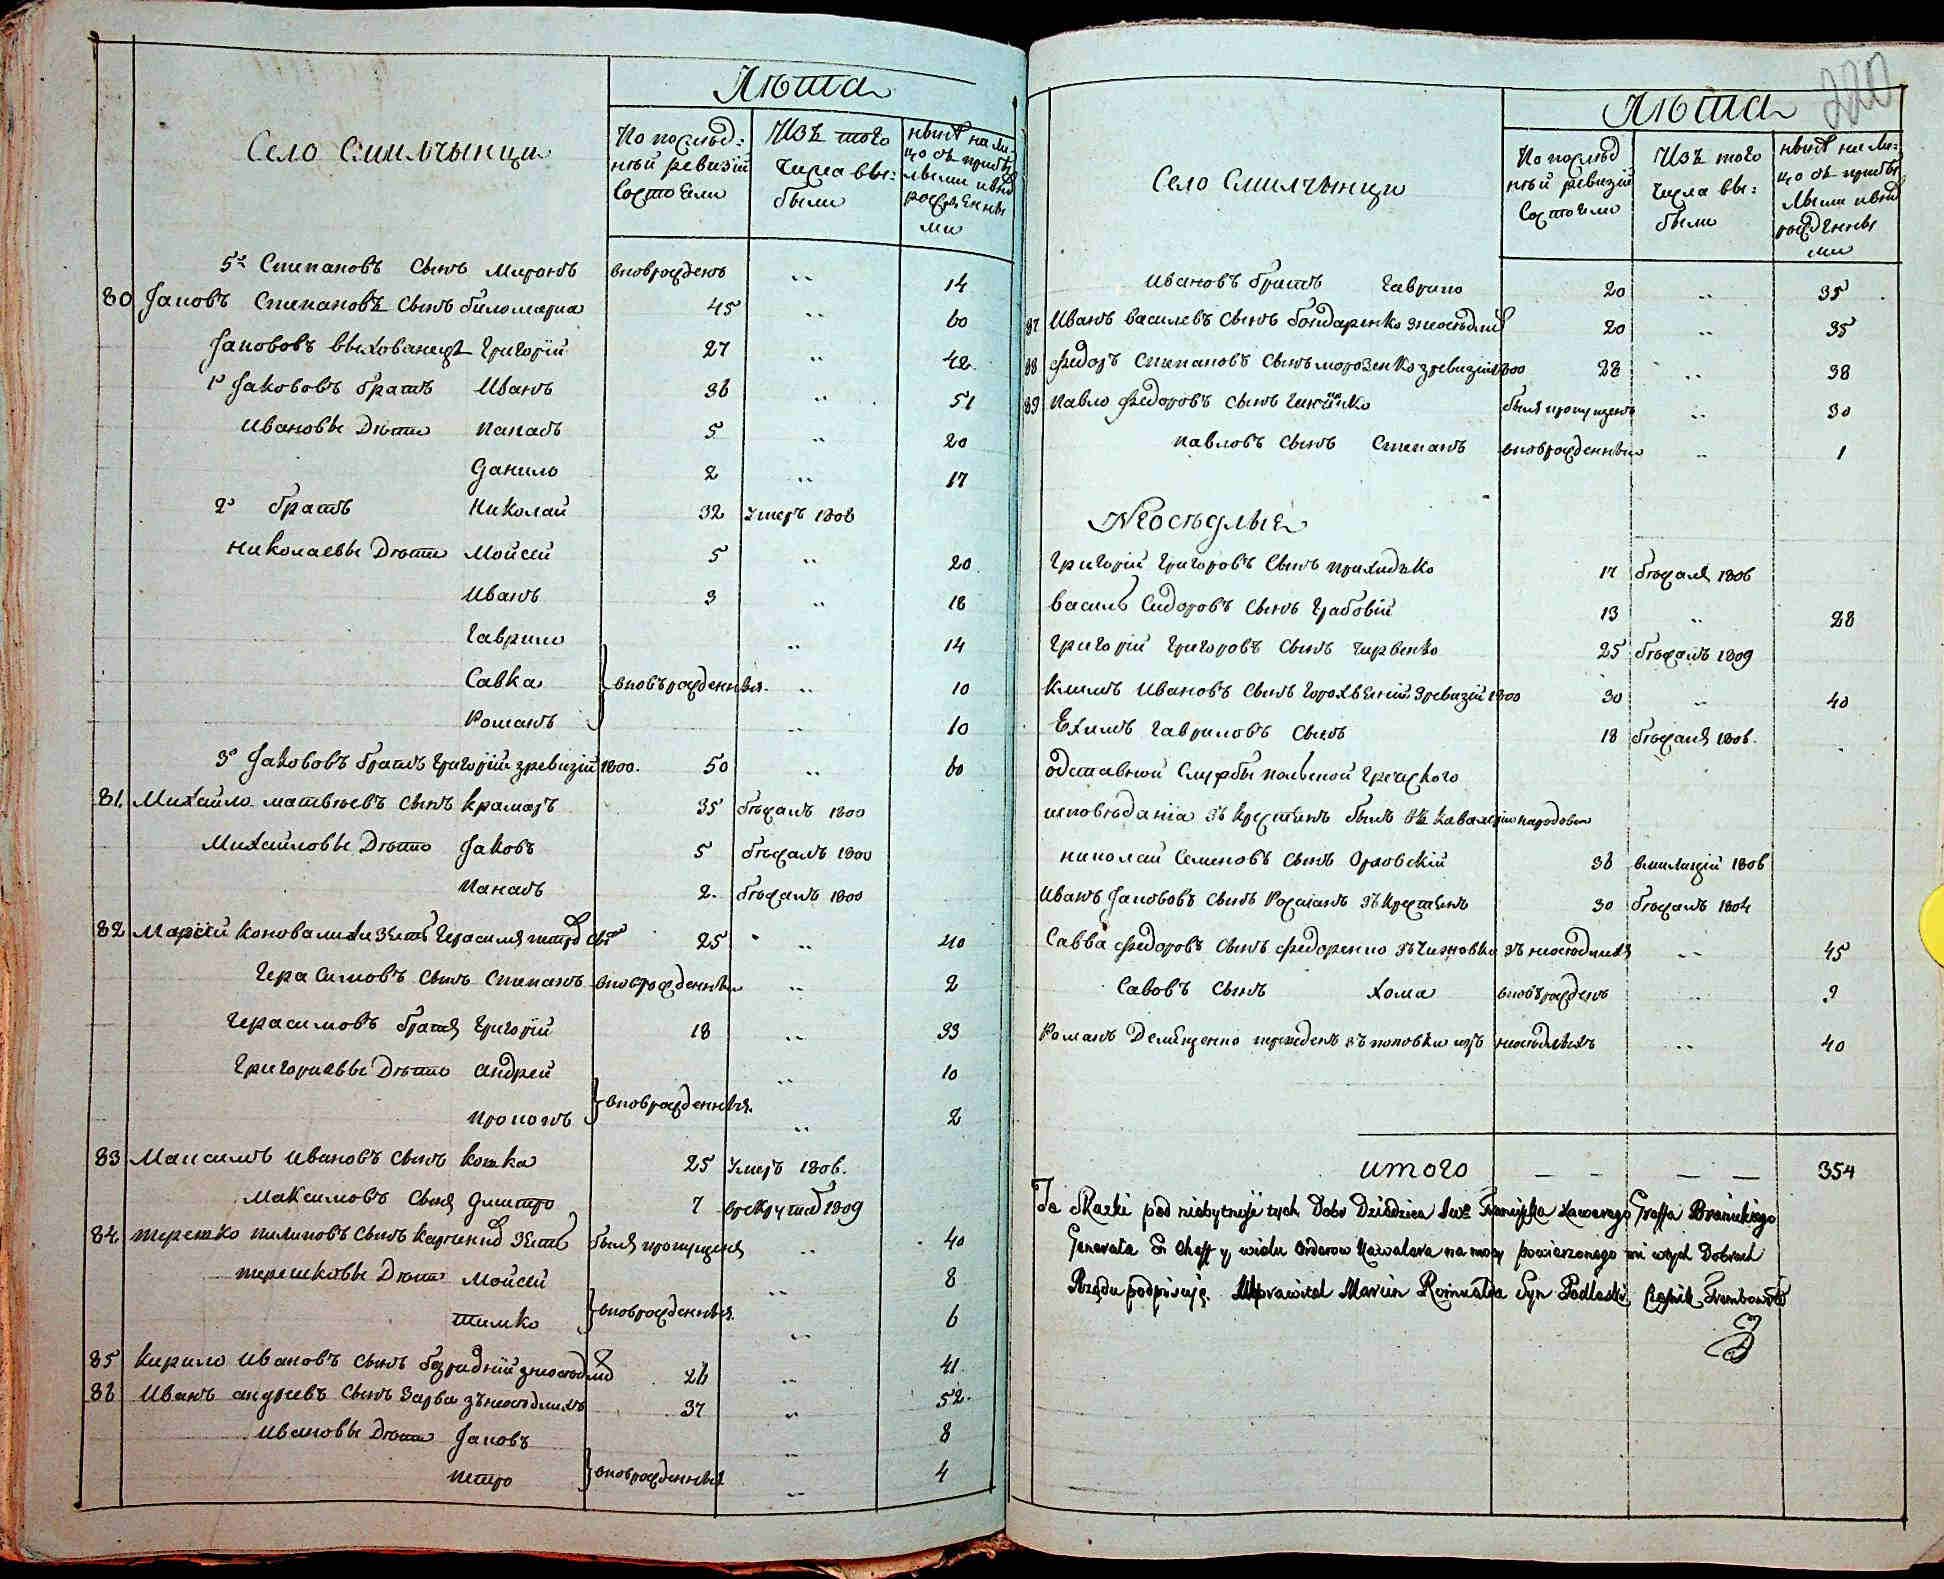 Лѣта
Село Смилчынци
По послѣд:
нѣй ревизіи
Состояли
Изъ того
Числа вы:
были
нынѣ на ли:
цо съ прибы
лыми и внов
рожденны
ми
5й Степановъ сынъ Миронъ вновьрожденъ 14
80 Јаковъ Степановъ сынъ Биломариа 45 60
Јаковов выхованецъ Григорій 27 42
1й Јакововъ братъ Иванъ 36 51
Ивановы Дѣти Панасъ 5 20
Данило 2 17
2й братъ Николай 32 Умеръ 1808
Николаевы Дѣти Мойсей 5 20
Иванъ 3 18
Гаврило 14
Савка вновьрожденныя 10
Романъ 10
3й Јакововъ братъ Григорій зревизій 1800. 50 60
81 Михайло Матвѣевъ сынъ Крамаръ 35 бѣжалъ 1800
Михайловы Дѣти Јаковъ 5 бѣжалъ 1800
Панасъ 2. бѣжалъ 1800
82 Коновалихи Зять Герасим 25 40
Герасимовъ сынъ Степанъ вновьрожденны 2
Герасимовъ братъ Григорій 18 33
Григориевы Дѣти Андрей 10
вновьрожденныя.
Прокопъ 2
83 Максимъ Ивановъ сынъ Кошка 25 Умеръ 1806.
Максимовъ сынъ Дмитро 7 врекруты 1809
84 Терешко Пилиповъ сынъ Зять былъ пропущенъ 40
Терешковы Дѣти Мойсей 8
вновьрожденныя.
Тимко 6
85 Кирило Ивановъ сынъ безридній 26 41
86 Иванъ Андреевъ сынъ Зарва зънеосѣдлихъ 37 52
Ивановы Дѣти Јаковъ 8
Петро вновьрожденныя 4
220
Лѣта
Село Смилчынци
По послѣд
нѣй ревизіи
Состояли
Изъ того
Числа вы:
были
нынѣ на ли:
цо съ прибы
лыми и внов
рожденны
ми
Ивановъ братъ Гаврило 20 35
87 Иванъ Василевъ сынъ Бондаренко знеосѣдлих 20 35
88 Федоръ Степановъ сынъ Морозенко зревизій 1800 28 38
89 Павло Федоровъ сынъ былъ пропущенъ 30
Павловъ сынъ Степанъ вновьрожденны 1
Неосѣдлыя
Григорій Григоровъ сынъ Прихидько 17 бѣжалъ 1806
Василь Сидоровъ сынъ Грабовій 13 28
Григорій Григоровъ сынъ Чирвенко 25 бѣжалъ 1809
Климъ Ивановъ сынъ зревизій 1800 30 40
Ехимъ Гавриловъ сынъ 18 бѣжалъ 1806.
одставной службы польской греческого
исповѣданіа зъ крестянъ былъ въ кавалеріи народовой
Николай Семеновъ сынъ Орловскій 36 вмилицій 1806
Иванъ Јаковов сынъ зъ крестянъ 30 бѣжалъ 1804
Савва Федоровъ сынъ Федоренко зъ Чижовки зъ неосѣдлихъ 45
Савовъ сынъ Хома вновьрожденъ 2
Романъ Демяненко переведенъ зъ Поповки изъ неосѣдлыхъ 40
итого — — — — 354
Te Skazki pod niebytność tych Dobr Dziedzica Jwo Franciszka Xawerego Graffa Branickiego
Generała En Cheff y wielu Orderow Kawalera na mocy powierzonego mi wtych Dobrach
Rządu podpisuję. Uprawitel Marcin Romualda Syn Podlaski